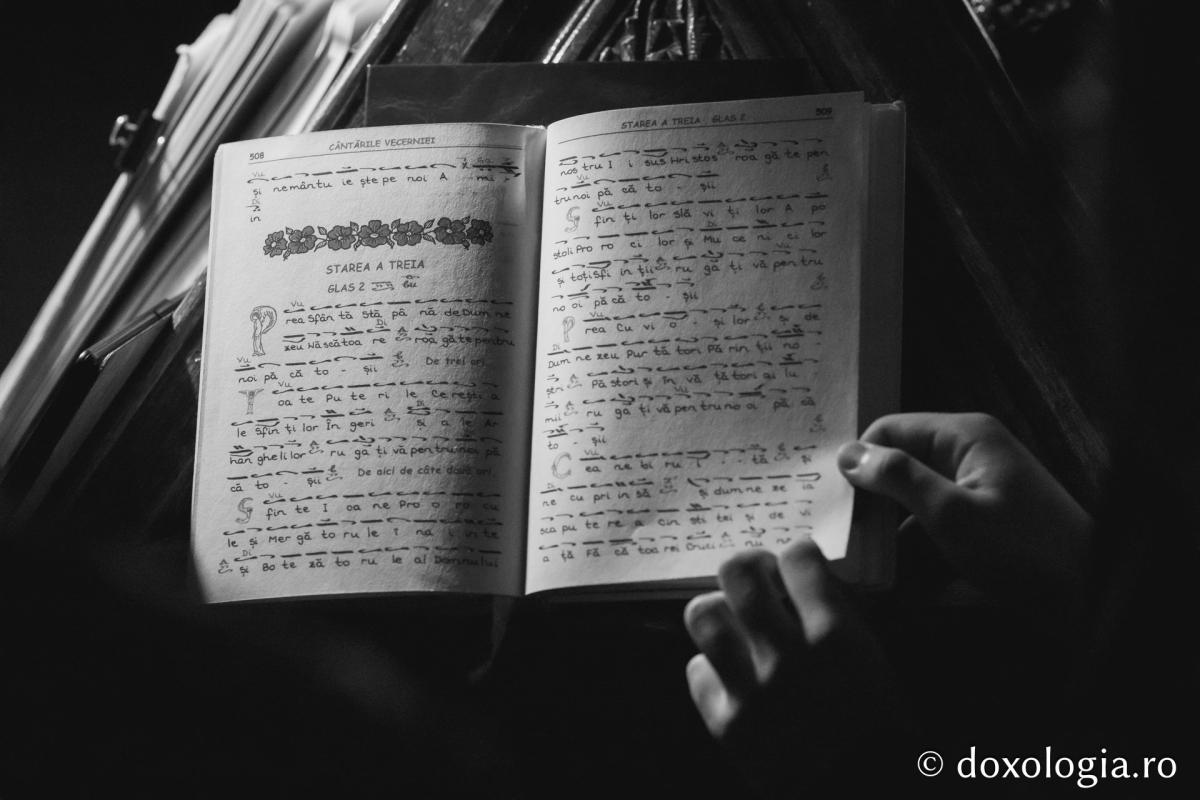 508
CÂNTĂRILE VECERNIEI
Vu
și ne mântu ie ște pe noi A mi
Di
in
STAREA A TREIA
GLAS 2
Vu
Prea Sfân tă Stă pâ nă de Dum ne
Di
zeu Născătoa re roa gă te pentru
Vu
noi pă că to - șii De trei ori.
Vu
Toa te Pu te ri le Ce rești a
Di
le Sfin ți lor În geri și a le Ar
han ghe li lor ru ga ți vă pen tru noi pă
că to - șii De aici de câte două ori.
Vu
Sfin te I oa ne Pro o ro cu
le și Mer gă to ru le î na in te
Di
și Bo te ză to ru le al Domnului
STAREA A TREIA GLAS 2
509
nos tru I i sus Hris tos roa gă te pen
Vu
tru noi pă că to - șii
Vu
Sfin ți lor slă vi ți lor A po
Di
stoli Pro ro ci lor și Mu ce ni ci lor
Vu
și toți Sfi in ții ru ga ți vă pen tru
no oi pă că to - șii
Vu
Prea Cu vi o - și lor și de
Di
Dum ne zeu Pur tă tori Pă rin ții no -
ștri Pă stori și În vă ță tori ai lu
Vu
mii ru ga ți vă pen tru no oi pă că
to - șii
Vu
Cea ne bi ru i - - tă și
Di
ne cu pri in să și dum ne ze ia
sca pu te re a cin sti tei și de vi
Di
a ță Fă că toa rei Cruci nu
© doxologia.ro